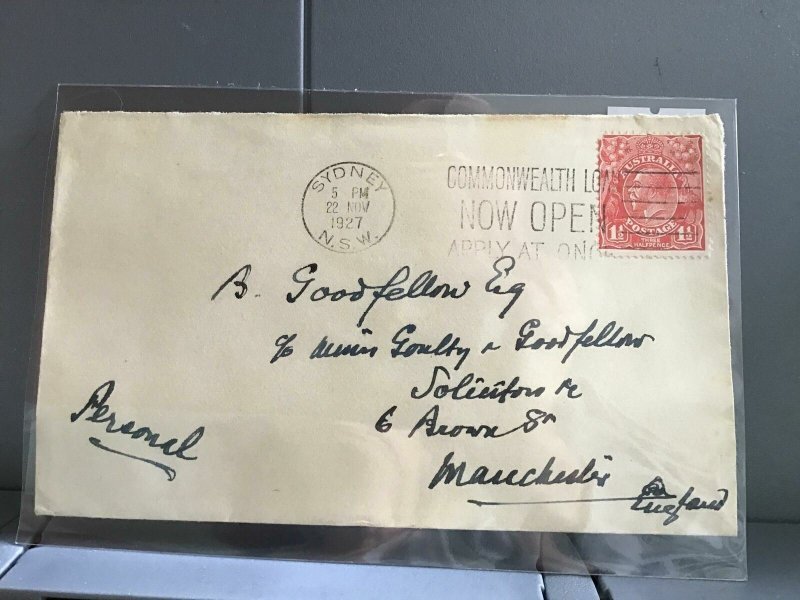 SYDNEY
5 PM
22 NOV
1927
N.S.W.
COMMONWEALTH LOAN
NOW OPEN
APPLY AT ONCE
AUSTRALIA
POSTAGE
1½ 1½
THREE
HALFPENCE
B. Goodfellow Esq
c/o Messrs Goulty & Goodfellow
Solicitors &c
6 Brown St
Manchester
England
Personal